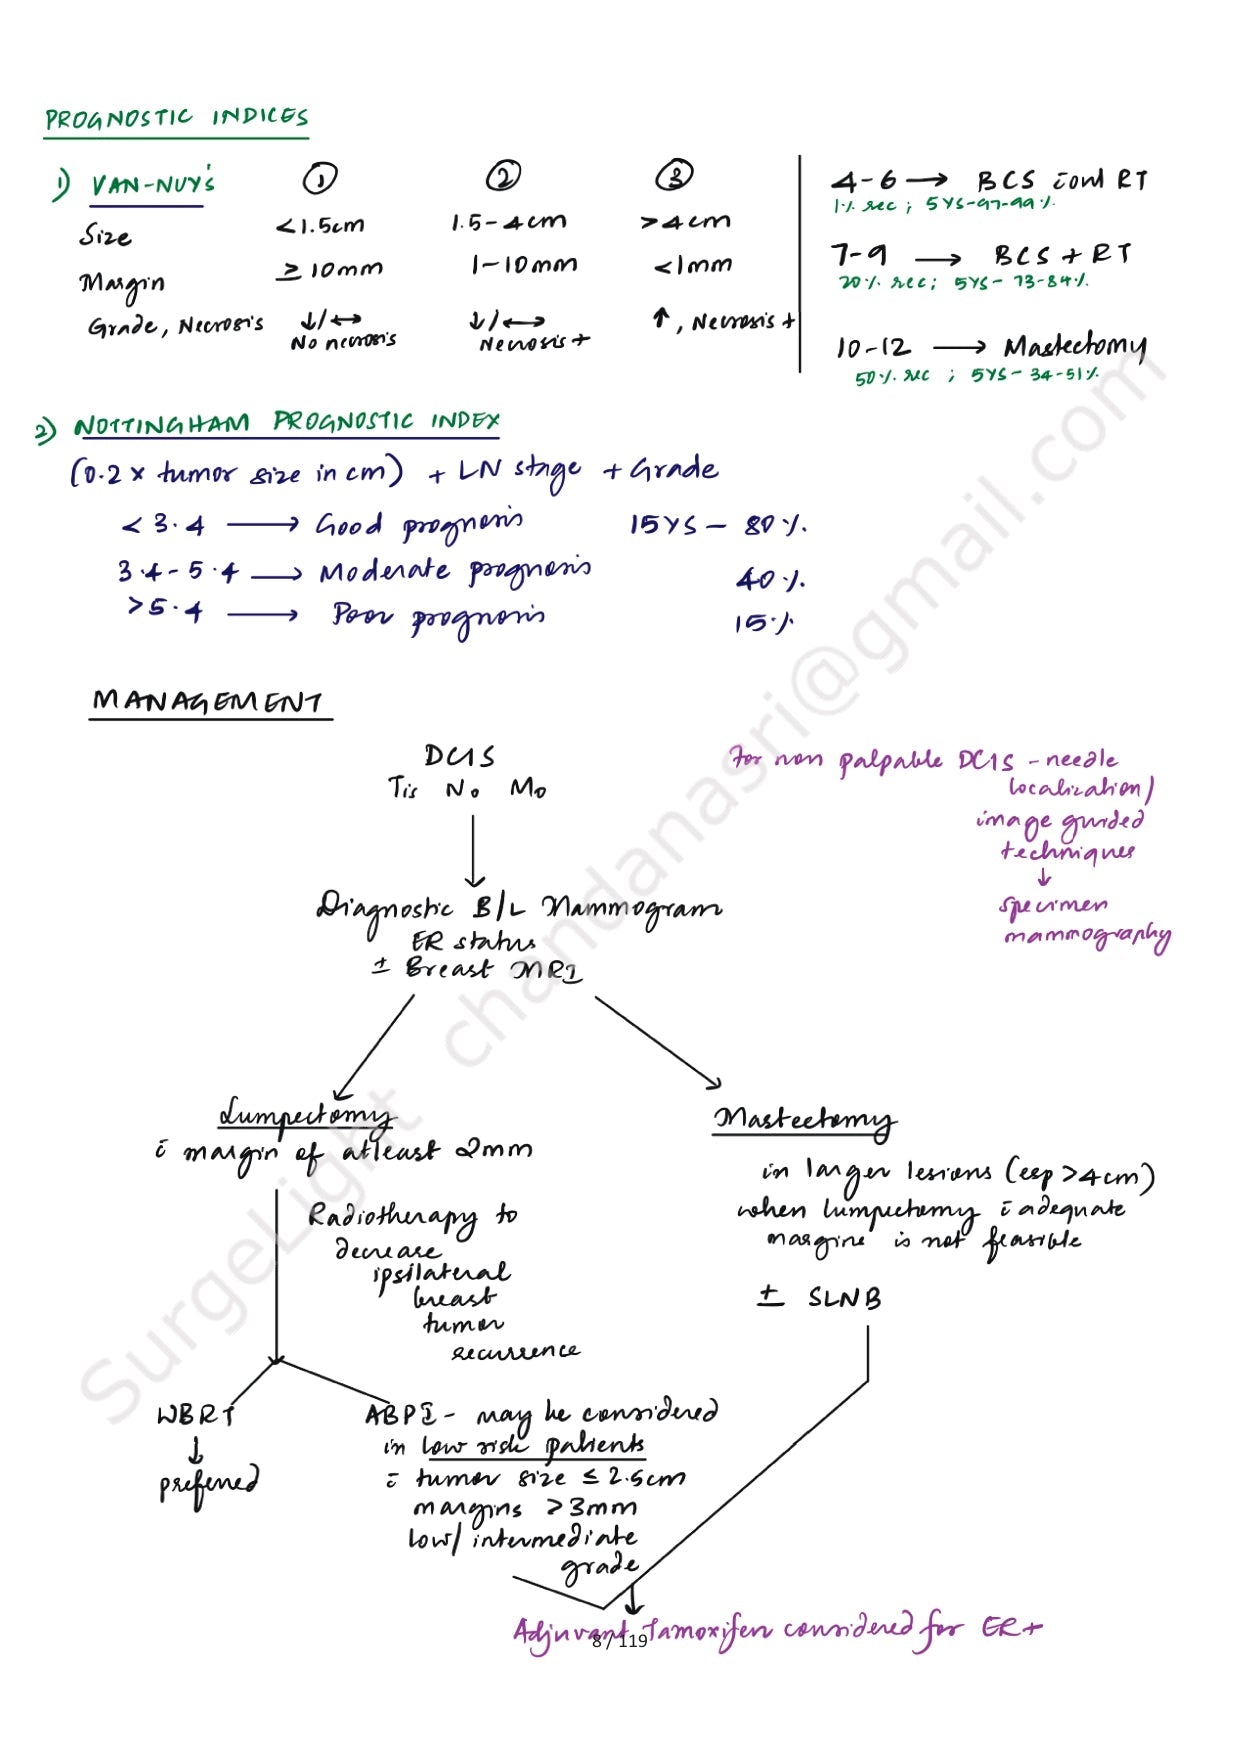 PROGNOSTIC INDICES
1) VAN-NUY's ① ② ③
Size <1.5cm 1.5-4cm >4cm
Margin ≥10mm 1-10mm <1mm
Grade, Necrosis ↓/↔ No necrosis ↓/↔ Necrosis + ↑, Necrosis +
4-6 → BCS
RT
1% rec ; 5YS-97-99%
7-9 → BCS + RT
20% rec; 5YS- 73-84%
10-12 → Mastectomy
50% rec ; 5YS- 34-51%
2) NOTTINGHAM PROGNOSTIC INDEX
(0.2 x tumor size in cm) + LN stage + Grade
< 3.4 → Good prognosis 15YS - 80%
3.4-5.4 → Moderate prognosis 40%
>5.4 → Poor prognosis 15%
MANAGEMENT
DCIS
Tis N0 M0
For non palpable DCIS - needle
localization/
image guided
techniques
↓
specimen
mammography
Diagnostic B/L Mammogram
ER status
± Breast MRI
Lumpectomy
c̄ margin of atleast 2mm
Radiotherapy to
decrease
ipsilateral
breast
tumor
recurrence
Mastectomy
in larger lesions (esp >4cm)
when lumpectomy c̄ adequate
margins is not feasible
± SLNB
WBRT
↓
preferred
ABPI - may be considered
in low risk patients
c̄ tumor size ≤ 2.5cm
margins >3mm
low/intermediate
grade
Adjuvant Tamoxifen considered for ER+
8 / 119
SurgeLight chandanasri@gmail.com